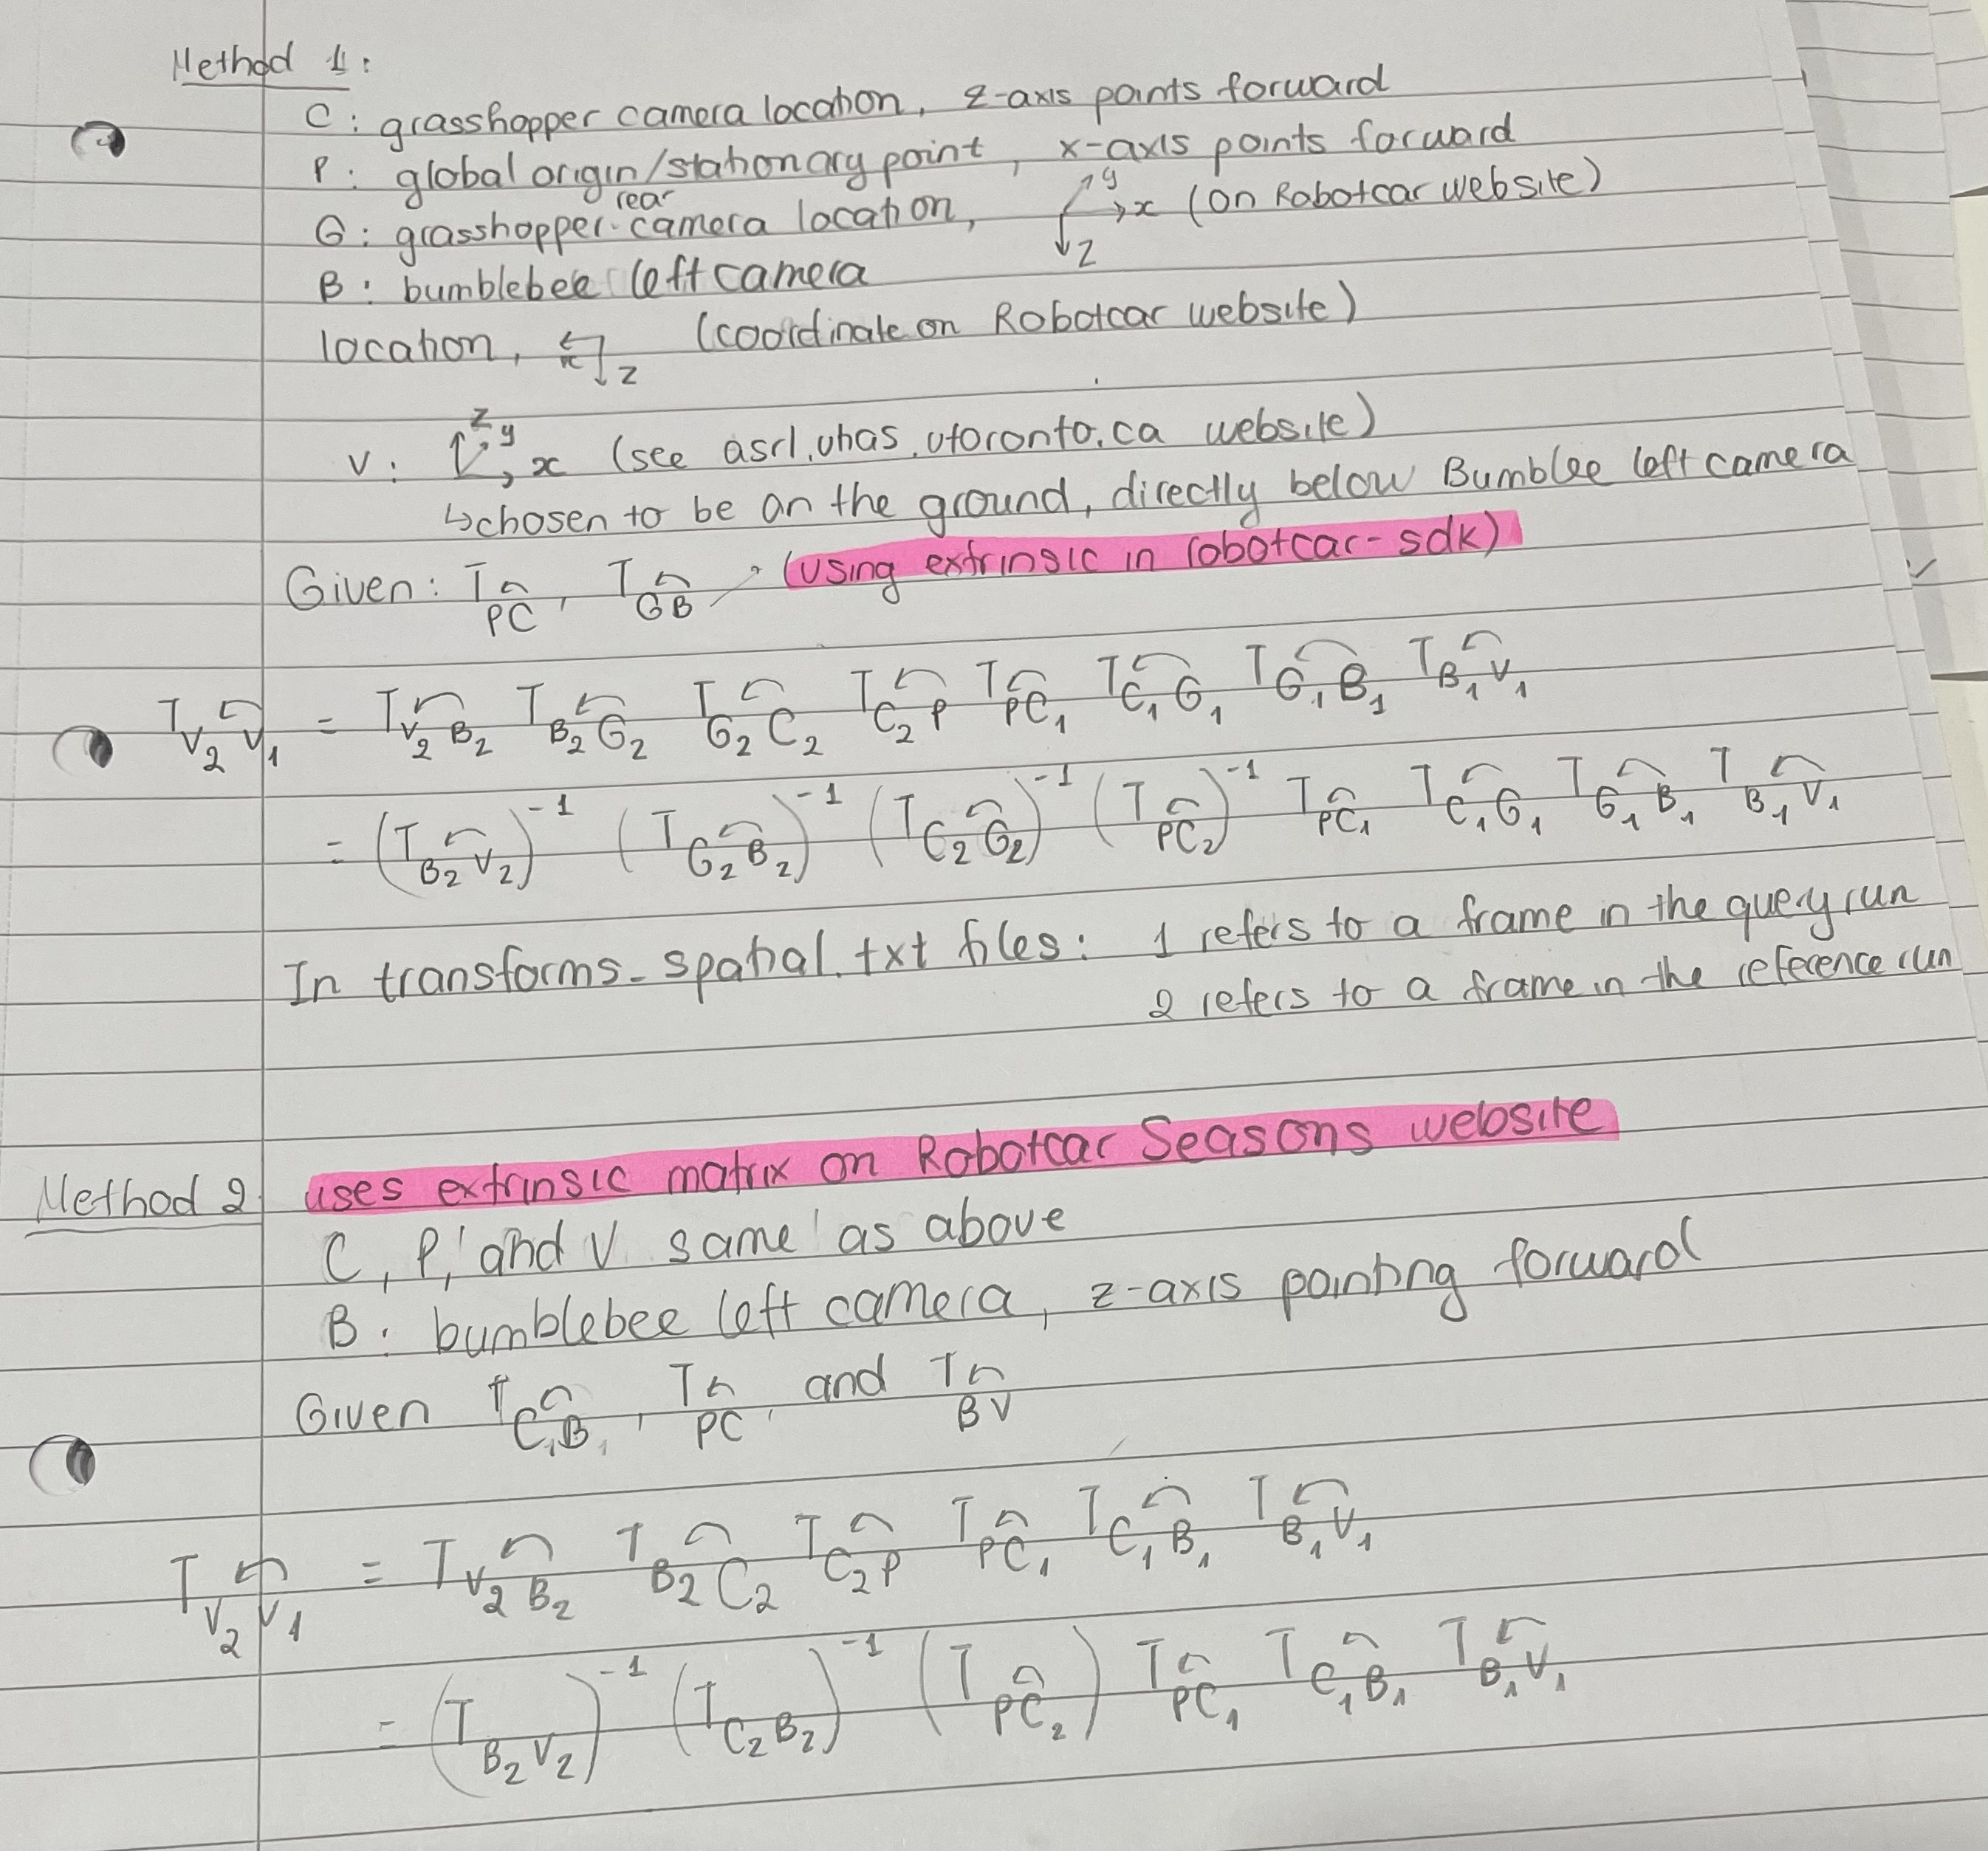 Method 1:
C: grasshopper camera location, z-axis points forward
P: global origin/stationary point, x-axis points forward
G: grasshopper rear camera location, y x z (on Robotcar website)
B: bumblebee left camera
location, x z (coordinate on Robotcar website)
V: z y x (see asrl.utias.utoronto.ca website)
↳chosen to be on the ground, directly below Bumblee left camera
Given: T PC, T GB (using extrinsic in robotcar-sdk)
T V₂V₁ = T V₂B₂ T B₂G₂ T G₂C₂ T C₂P T PC₁ T C₁G₁ T G₁B₁ T B₁V₁
= (T B₂V₂)⁻¹ (T G₂B₂)⁻¹ (T C₂G₂)⁻¹ (T PC₂)⁻¹ T PC₁ T C₁G₁ T G₁B₁ T B₁V₁
In transforms_spatial.txt files: 1 refers to a frame in the query run
2 refers to a frame in the reference run
Method 2 uses extrinsic matrix on Robotcar Seasons website
C, P, and V same as above
B: bumblebee left camera, z-axis pointing forward
Given T C₁B₁, T PC, and T BV
T V₂V₁ = T V₂B₂ T B₂C₂ T C₂P T PC₁ T C₁B₁ T B₁V₁
= (T B₂V₂)⁻¹ (T C₂B₂)⁻¹ (T PC₂) T PC₁ T C₁B₁ T B₁V₁